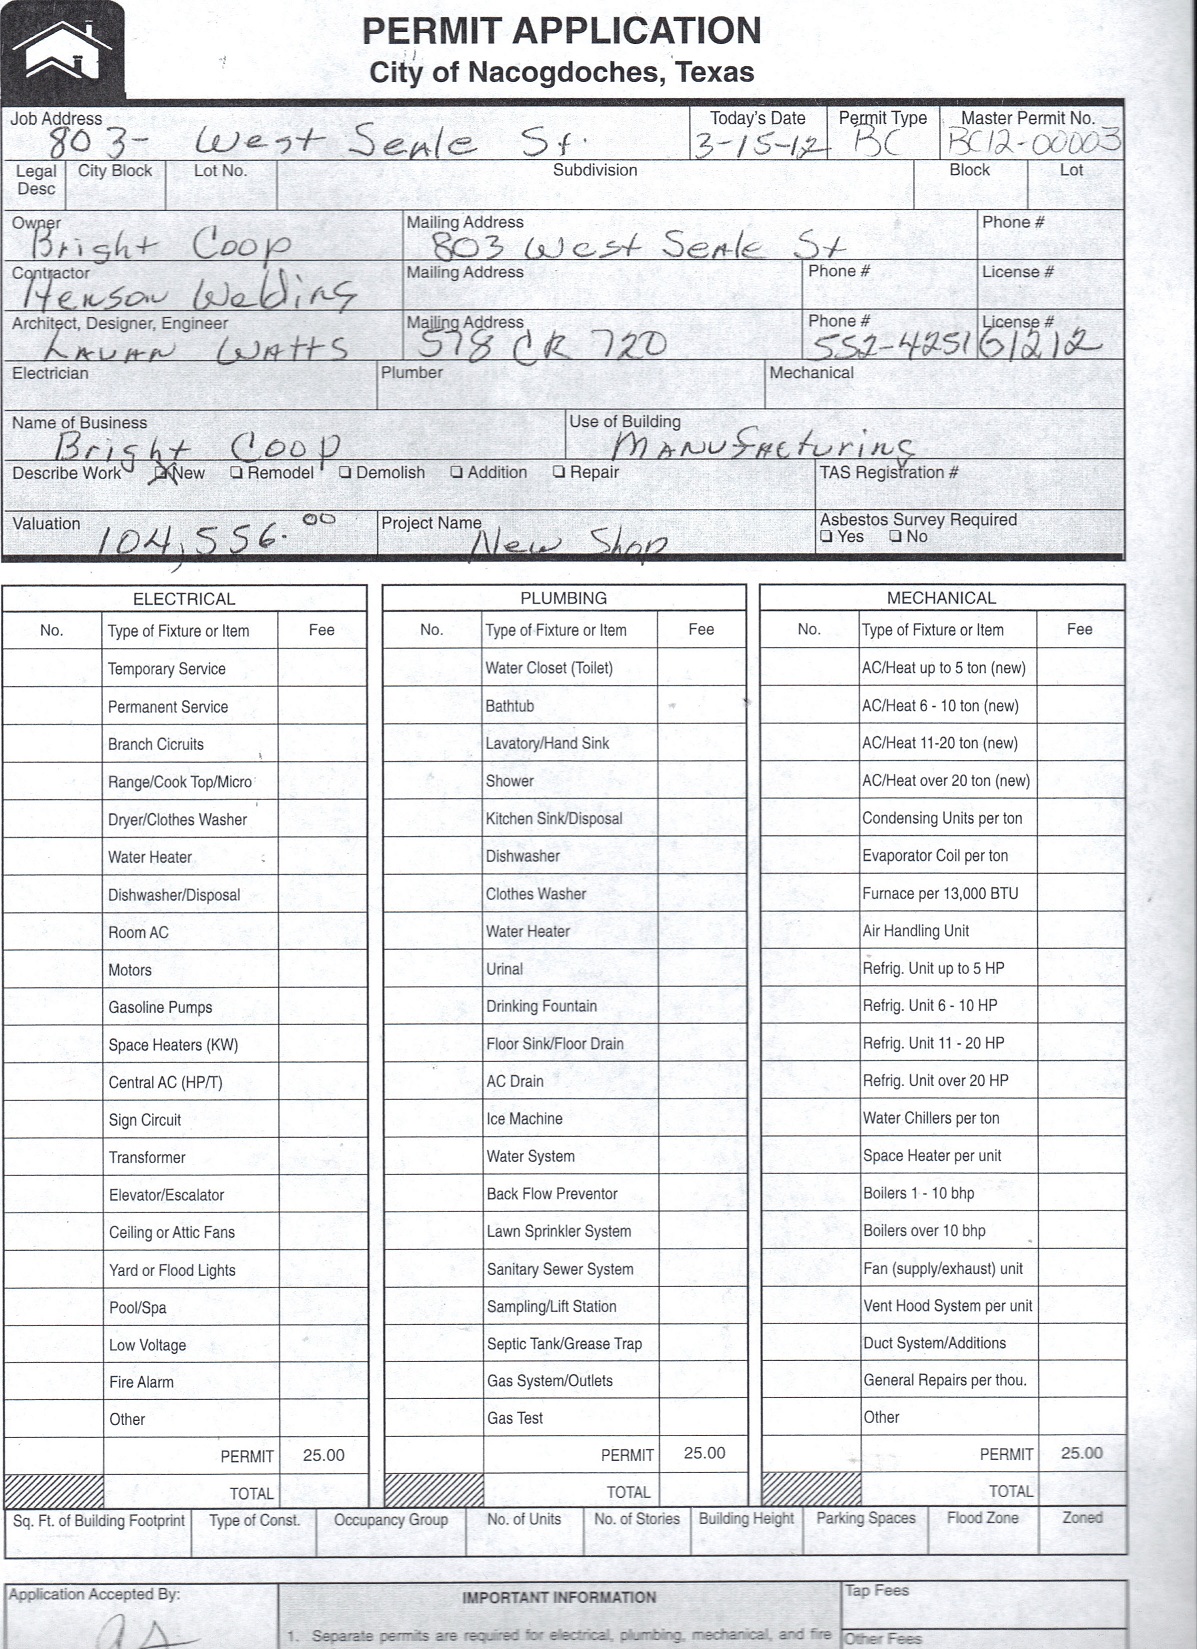 PERMIT APPLICATION
City of Nacogdoches, Texas
Job Address Today's Date Permit Type Master Permit No.
803- West Seale St. 3-15-12 BC BC12-00003
Legal Desc City Block Lot No. Subdivision Block Lot
Owner Mailing Address Phone #
Bright Coop 803 West Seale St
Contractor Mailing Address Phone # License #
Henson Welding
Architect, Designer, Engineer Mailing Address Phone # License #
Lavan Watts 578 CR 720 552-4251 61212
Electrician Plumber Mechanical
Name of Business Use of Building
Bright Coop Manufacturing
Describe Work New Remodel Demolish Addition Repair TAS Registration #
Valuation Project Name Asbestos Survey Required
104,556.00 New Shop Yes No
ELECTRICAL PLUMBING MECHANICAL
No. Type of Fixture or Item Fee No. Type of Fixture or Item Fee No. Type of Fixture or Item Fee
Temporary Service Water Closet (Toilet) AC/Heat up to 5 ton (new)
Permanent Service Bathtub AC/Heat 6 - 10 ton (new)
Branch Cicruits Lavatory/Hand Sink AC/Heat 11-20 ton (new)
Range/Cook Top/Micro Shower AC/Heat over 20 ton (new)
Dryer/Clothes Washer Kitchen Sink/Disposal Condensing Units per ton
Water Heater Dishwasher Evaporator Coil per ton
Dishwasher/Disposal Clothes Washer Furnace per 13,000 BTU
Room AC Water Heater Air Handling Unit
Motors Urinal Refrig. Unit up to 5 HP
Gasoline Pumps Drinking Fountain Refrig. Unit 6 - 10 HP
Space Heaters (KW) Floor Sink/Floor Drain Refrig. Unit 11 - 20 HP
Central AC (HP/T) AC Drain Refrig. Unit over 20 HP
Sign Circuit Ice Machine Water Chillers per ton
Transformer Water System Space Heater per unit
Elevator/Escalator Back Flow Preventor Boilers 1 - 10 bhp
Ceiling or Attic Fans Lawn Sprinkler System Boilers over 10 bhp
Yard or Flood Lights Sanitary Sewer System Fan (supply/exhaust) unit
Pool/Spa Sampling/Lift Station Vent Hood System per unit
Low Voltage Septic Tank/Grease Trap Duct System/Additions
Fire Alarm Gas System/Outlets General Repairs per thou.
Other Gas Test Other
PERMIT 25.00 PERMIT 25.00 PERMIT 25.00
TOTAL TOTAL TOTAL
Sq. Ft. of Building Footprint Type of Const. Occupancy Group No. of Units No. of Stories Building Height Parking Spaces Flood Zone Zoned
Application Accepted By: IMPORTANT INFORMATION Tap Fees
1. Separate permits are required for electrical, plumbing, mechanical, and fire Other Fees